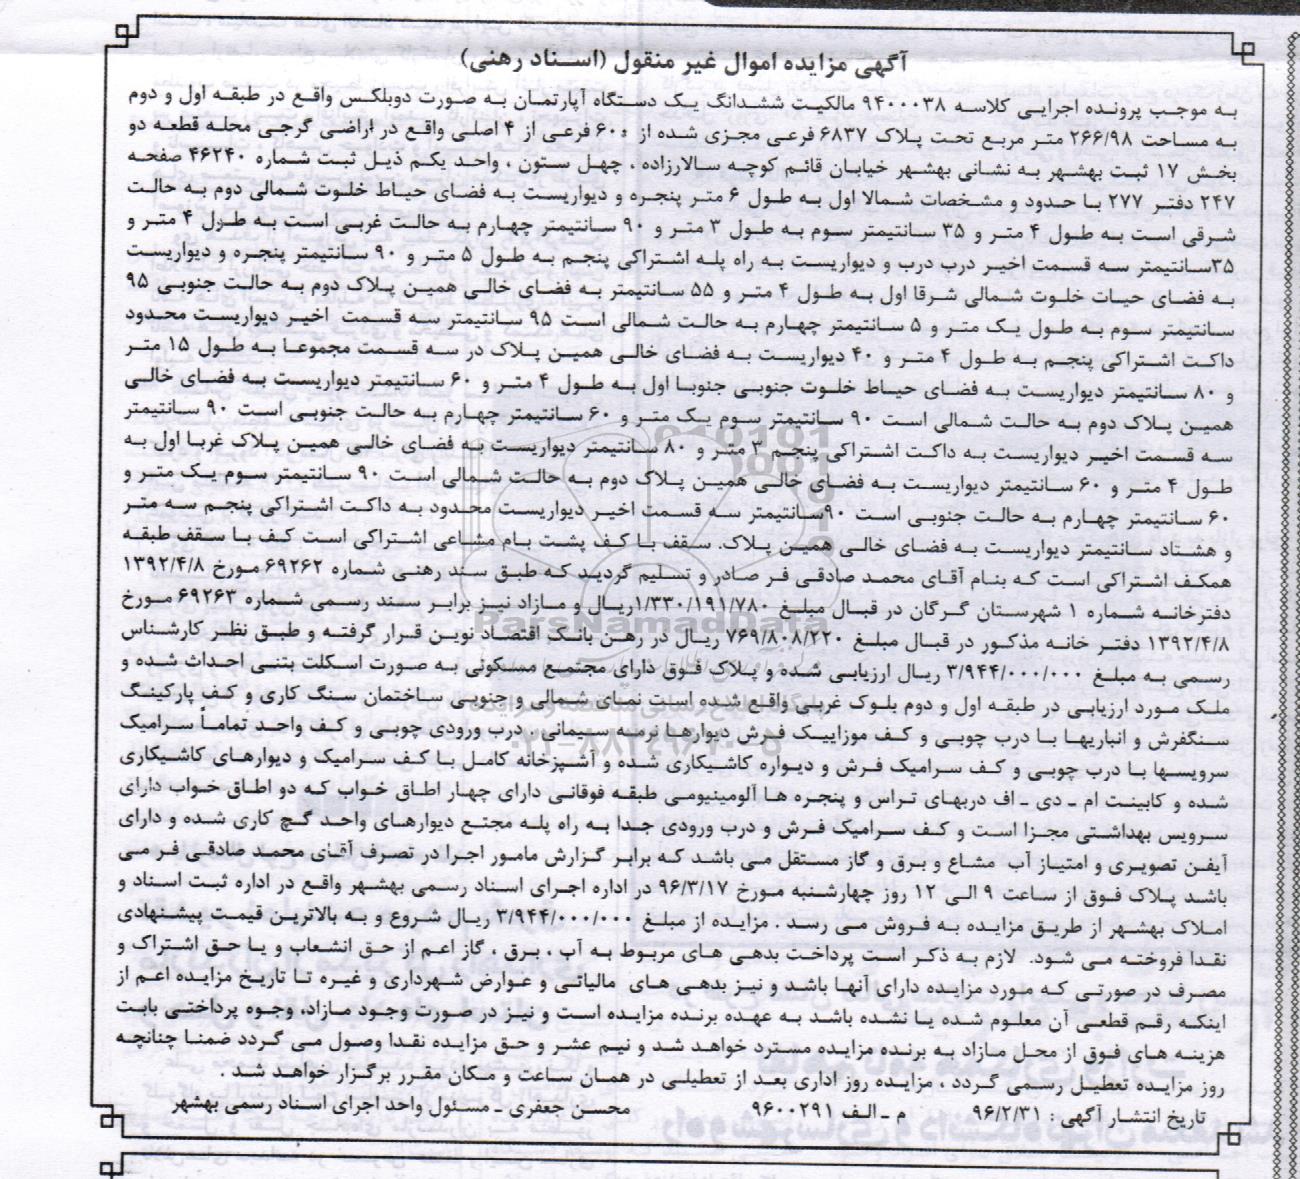 آگهی مزایده اموال غیر منقول (اسناد رهنی)
به موجب پرونده اجرایی کلاسه ۹۴۰۰۰۳۸ مالکیت ششدانگ یک دستگاه آپارتمان به صورت دوبلکس واقع در طبقه اول و دوم
به مساحت ۲۶۶/۹۸ متر مربع تحت پلاک ۶۸۳۷ فرعی مجزی شده از ۶۰۰ فرعی از ۴ اصلی واقع در اراضی گرجی محله قطعه دو
بخش ۱۷ ثبت بهشهر به نشانی بهشهر خیابان قائم کوچه سالارزاده ، چهل ستون ، واحد یکم ذیل ثبت شماره ۴۶۲۴۰ صفحه
۲۴۷ دفتر ۲۷۷ با حدود و مشخصات شمالا اول به طول ۶ متر پنجره و دیواریست به فضای حیاط خلوت شمالی دوم به حالت
شرقی است به طول ۴ متر و ۳۵ سانتیمتر سوم به طول ۳ متر و ۹۰ سانتیمتر چهارم به حالت غربی است به طول ۴ متر و
۳۵سانتیمتر سه قسمت اخیر درب درب و دیواریست به راه پله اشتراکی پنجم به طول ۵ متر و ۹۰ سانتیمتر پنجره و دیواریست
به فضای حیات خلوت شمالی شرقا اول به طول ۴ متر و ۵۵ سانتیمتر به فضای خالی همین پلاک دوم به حالت جنوبی ۹۵
سانتیمتر سوم به طول یک متر و ۵ سانتیمتر چهارم به حالت شمالی است ۹۵ سانتیمتر سه قسمت اخیر دیواریست محدود
داکت اشتراکی پنجم به طول ۴ متر و ۴۰ دیواریست به فضای خالی همین پلاک در سه قسمت مجموعا به طول ۱۵ متر
و ۸۰ سانتیمتر دیواریست به فضای حیاط خلوت جنوبی جنوبا اول به طول ۴ متر و ۶۰ سانتیمتر دیواریست به فضای خالی
همین پلاک دوم به حالت شمالی است ۹۰ سانتیمتر سوم یک متر و ۶۰ سانتیمتر چهارم به حالت جنوبی است ۹۰ سانتیمتر
سه قسمت اخیر دیواریست به داکت اشتراکی پنجم ۳ متر و ۸۰ سانتیمتر دیواریست به فضای خالی همین پلاک غربا اول به
طول ۴ متر و ۶۰ سانتیمتر دیواریست به فضای خالی همین پلاک دوم به حالت شمالی است ۹۰ سانتیمتر سوم یک متر و
۶۰ سانتیمتر چهارم به حالت جنوبی است ۹۰سانتیمتر سه قسمت اخیر دیواریست محدود به داکت اشتراکی پنجم سه متر
و هشتاد سانتیمتر دیواریست به فضای خالی همین پلاک. سقف با کف پشت بام مشاعی اشتراکی است کف با سقف طبقه
همکف اشتراکی است که بنام آقای محمد صادقی فر صادر و تسلیم گردید که طبق سند رهنی شماره ۶۹۲۶۲ مورخ ۱۳۹۲/۴/۸
دفترخانه شماره ۱ شهرستان گرگان در قبال مبلغ ۱/۳۳۰/۱۹۱/۷۸۰ریال و مازاد نیز برابر سند رسمی شماره ۶۹۲۶۳ مورخ
۱۳۹۲/۴/۸ دفتر خانه مذکور در قبال مبلغ ۷۶۹/۸۰۸/۲۲۰ ریال در رهن بانک اقتصاد نوین قرار گرفته و طبق نظر کارشناس
رسمی به مبلغ ۳/۹۴۴/۰۰۰/۰۰۰ ریال ارزیابی شده و پلاک فوق دارای مجتمع مسکونی به صورت اسکلت بتنی احداث شده و
ملک مورد ارزیابی در طبقه اول و دوم بلوک غربی واقع شده است نمای شمالی و جنوبی ساختمان سنگ کاری و کف پارکینگ
سنگفرش و انباریها با درب چوبی و کف موزاییک فرش دیوارها نرمه سیمانی ، درب ورودی چوبی و کف واحد تماماً سرامیک
سرویسها با درب چوبی و کف سرامیک فرش و دیواره کاشیکاری شده و آشپزخانه کامل با کف سرامیک و دیوارهای کاشیکاری
شده و کابینت ام ـ دی ـ اف دربهای تراس و پنجره ها آلومینیومی طبقه فوقانی دارای چهار اطاق خواب که دو اطاق خواب دارای
سرویس بهداشتی مجزا است و کف سرامیک فرش و درب ورودی جدا به راه پله مجتع دیوارهای واحد گچ کاری شده و دارای
آیفن تصویری و امتیاز آب مشاع و برق و گاز مستقل می باشد که برابر گزارش مامور اجرا در تصرف آقای محمد صادقی فر می
باشد پلاک فوق از ساعت ۹ الی ۱۲ روز چهارشنبه مورخ ۹۶/۳/۱۷ در اداره اجرای اسناد رسمی بهشهر واقع در اداره ثبت اسناد و
املاک بهشهر از طریق مزایده به فروش می رسد . مزایده از مبلغ ۳/۹۴۴/۰۰۰/۰۰۰ ریال شروع و به بالاترین قیمت پیشنهادی
نقدا فروخته می شود. لازم به ذکر است پرداخت بدهی های مربوط به آب ، برق ، گاز اعم از حق انشعاب و یا حق اشتراک و
مصرف در صورتی که مورد مزایده دارای آنها باشد و نیز بدهی های مالیاتی و عوارض شهرداری و غیره تا تاریخ مزایده اعم از
اینکه رقم قطعی آن معلوم شده یا نشده باشد به عهده برنده مزایده است و نیز در صورت وجود مازاد، وجوه پرداختی بابت
هزینه های فوق از محل مازاد به برنده مزایده مسترد خواهد شد و نیم عشر و حق مزایده نقدا وصول می گردد ضمنا چنانچه
روز مزایده تعطیل رسمی گردد ، مزایده روز اداری بعد از تعطیلی در همان ساعت و مکان مقرر برگزار خواهد شد .
تاریخ انتشار آگهی: ۹۶/۲/۳۱ م ـ الف ۹۶۰۰۲۹۱ محسن جعفری ـ مسئول واحد اجرای اسناد رسمی بهشهر
ParsNamadData